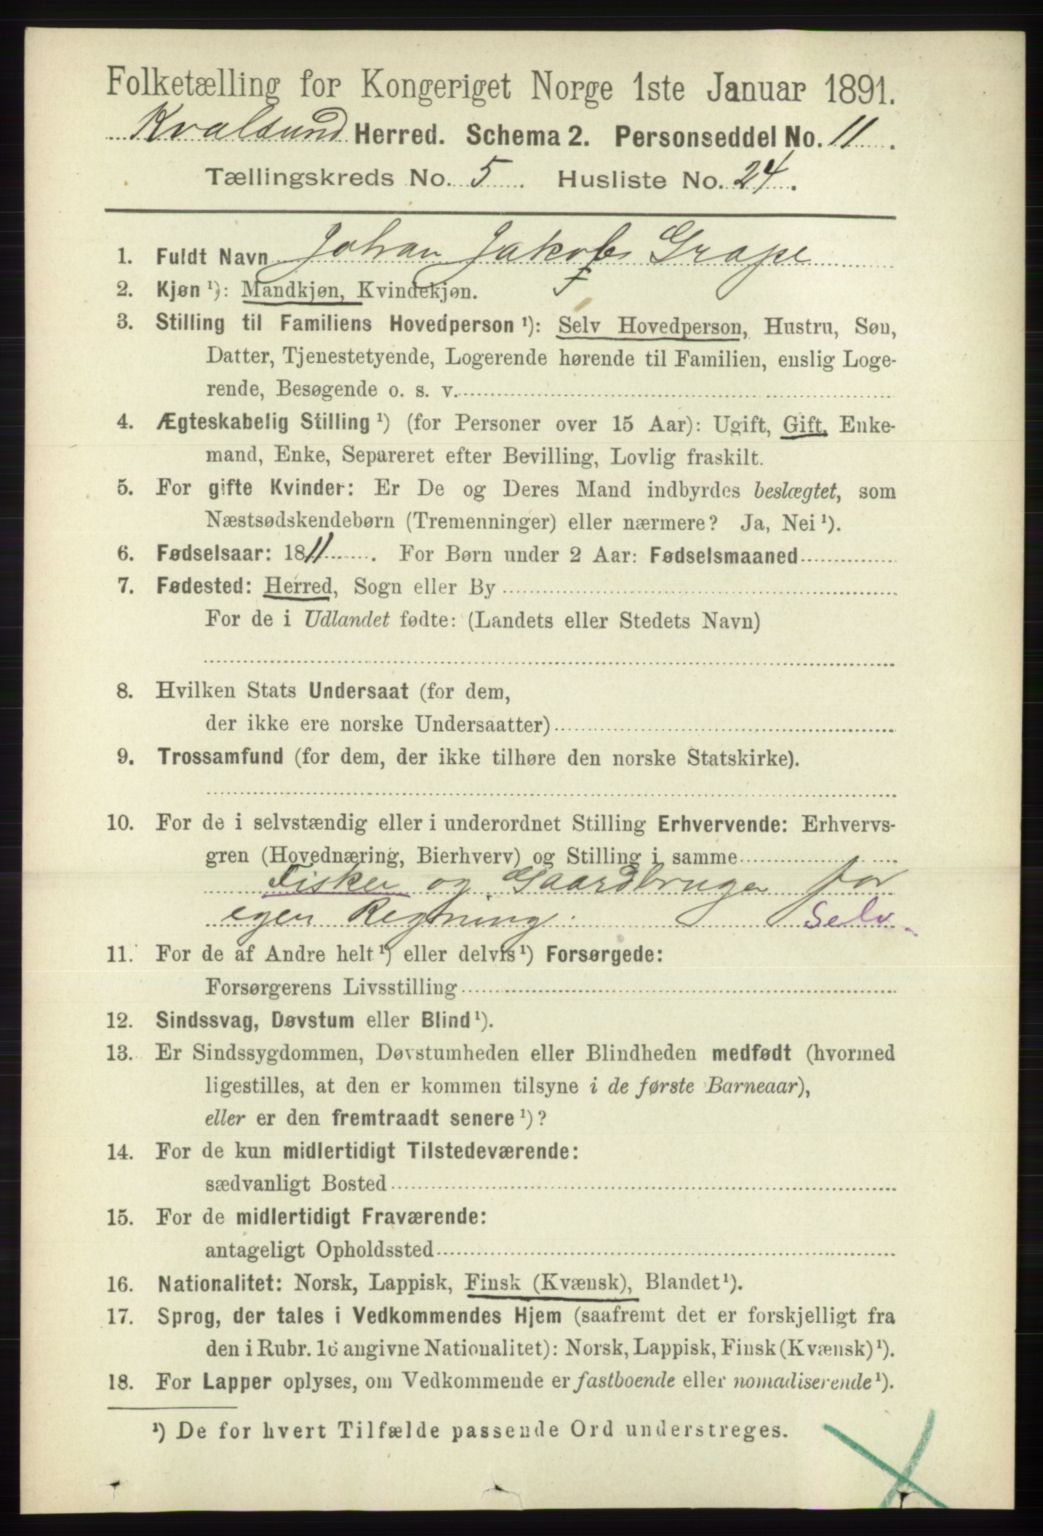 Folketælling for Kongeriget Norge 1ste Januar 1891.
Kvalsund Herred. Schema 2. Personseddel No. 11.
Tællingskreds No. 5. Husliste No. 24.
1. Fuldt Navn Johan Jakobs Grape
2. Kjøn ¹): Mandkjøn, Kvindekjøn.
3. Stilling til Familiens Hovedperson ¹): Selv Hovedperson, Hustru, Søn,
Datter, Tjenestetyende, Logerende hørende til Familien, enslig Loge-
rende, Besøgende o. s. v.
4. Ægteskabelig Stilling ¹) (for Personer over 15 Aar): Ugift, Gift, Enke-
mand, Enke, Separeret efter Bevilling, Lovlig fraskilt.
5. For gifte Kvinder: Er De og Deres Mand indbyrdes beslægtet, som
Næstsødskendebørn (Tremenninger) eller nærmere? Ja, Nei ¹).
6. Fødselsaar: 1811. For Børn under 2 Aar: Fødselsmaaned
7. Fødested: Herred, Sogn eller By
For de i Udlandet fødte: (Landets eller Stedets Navn)
8. Hvilken Stats Undersaat (for dem,
der ikke ere norske Undersaatter)
9. Trossamfund (for dem, der ikke tilhøre den norske Statskirke).
10. For de i selvstændig eller i underordnet Stilling Erhvervende: Erhvervs-
gren (Hovednæring, Bierhverv) og Stilling i samme
Fisker og Gaardbruger for
egen Regning. Selv.
11. For de af Andre helt ¹) eller delvis ¹) Forsørgede:
Forsørgerens Livsstilling
12. Sindssvag, Døvstum eller Blind ¹).
13. Er Sindssygdommen, Døvstumheden eller Blindheden medfødt (hvormed
ligestilles, at den er kommen tilsyne i de første Barneaar),
eller er den fremtraadt senere ¹)?
14. For de kun midlertidigt Tilstedeværende:
sædvanligt Bosted
15. For de midlertidigt Fraværende:
antageligt Opholdssted
16. Nationalitet: Norsk, Lappisk, Finsk (Kvænsk), Blandet ¹).
17. Sprog, der tales i Vedkommendes Hjem (saafremt det er forskjelligt fra
den i Rubr. 16 angivne Nationalitet): Norsk, Lappisk, Finsk (Kvænsk) ¹).
18. For Lapper oplyses, om Vedkommende er fastboende eller nomadiserende ¹).
¹) De for hvert Tilfælde passende Ord understreges.